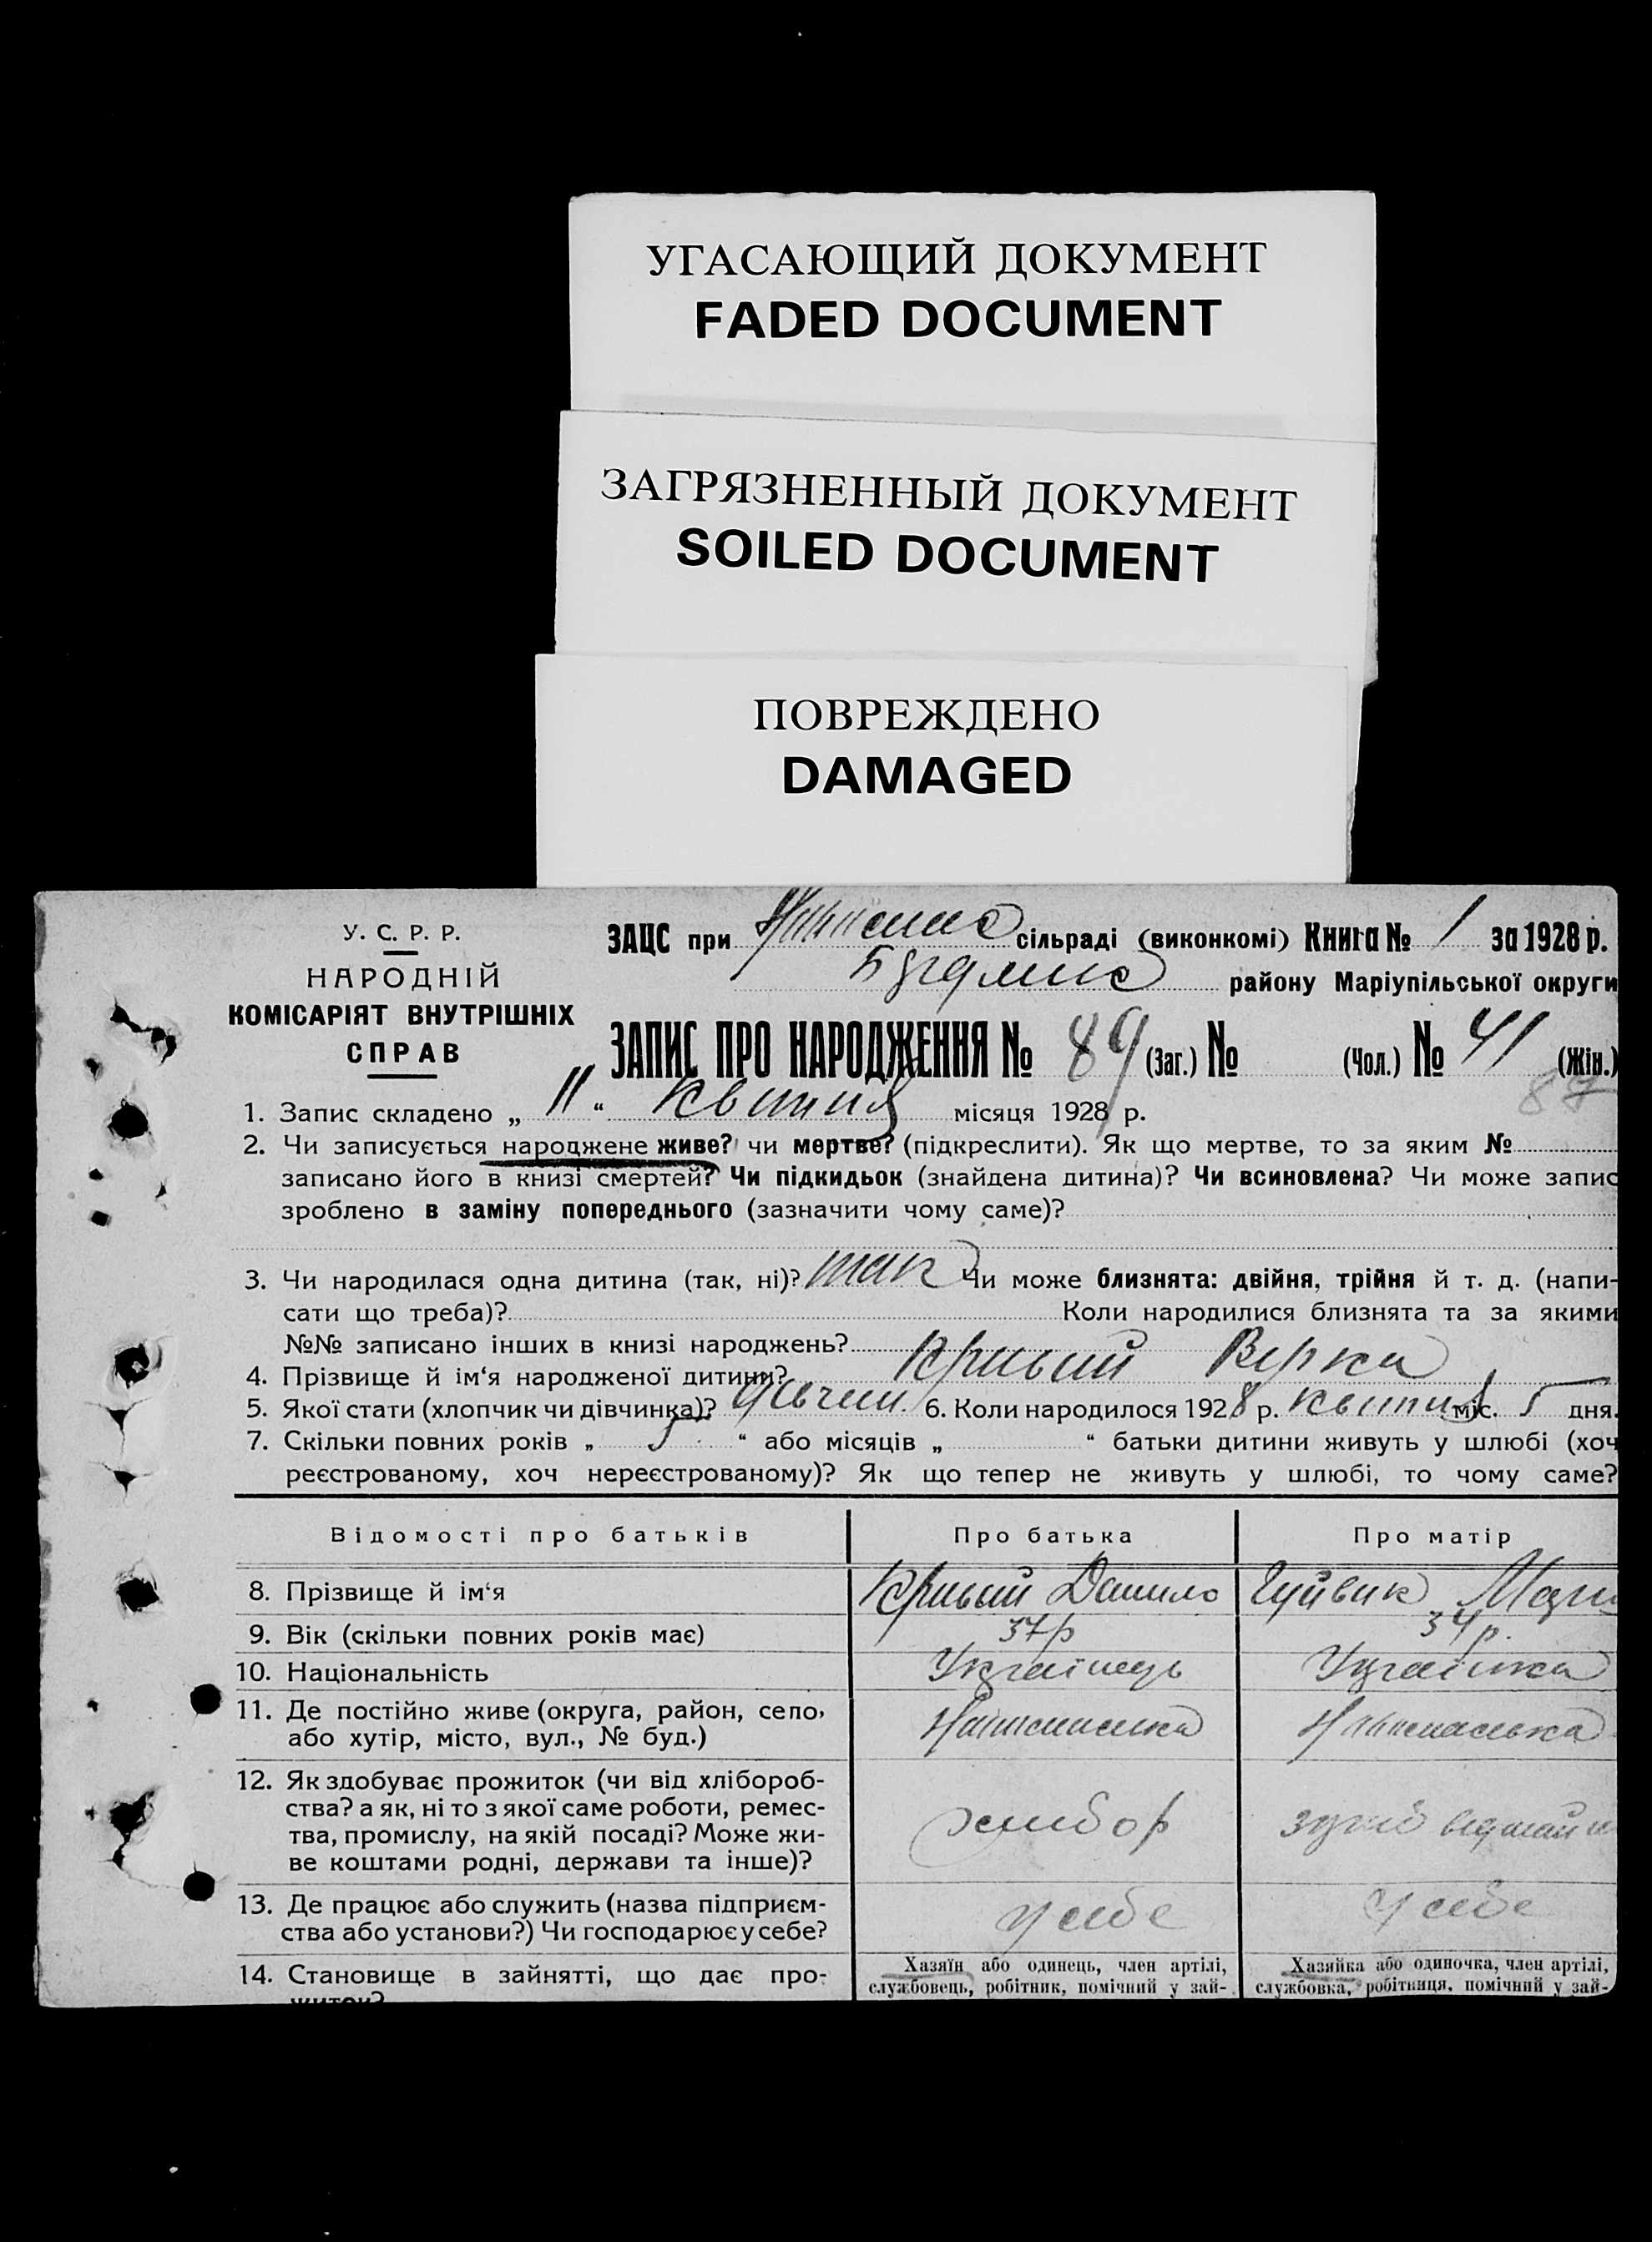 УГАСАЮЩИЙ ДОКУМЕНТ
FADED DOCUMENT
ЗАГРЯЗНЕННЫЙ ДОКУМЕНТ
SOILED DOCUMENT
ПОВРЕЖДЕНО
DAMAGED
У. С. Р. Р.
НАРОДНІЙ
КОМІСАРІЯТ ВНУТРІШНІХ
СПРАВ
ЗАЦС при сільраді (виконкомі) Книга № 1 за 1928 р.
району Маріупільської округи
ЗАПИС ПРО НАРОДЖЕННЯ № 89 (Заг.) № (Чол.) № 41 (Жін.)
87
1. Запис складено „ 11 “ Квітня місяця 1928 р.
2. Чи записується народжене живе? чи мертве? (підкреслити). Як що мертве, то за яким №
записано його в книзі смертей? Чи підкидьок (знайдена дитина)? Чи всиновлена? Чи може запис
зроблено в заміну попереднього (зазначити чому саме)?
3. Чи народилася одна дитина (так, ні)? так Чи може близнята: двійня, трійня й т. д. (напи-
сати що треба)? Коли народилися близнята та за якими
№№ записано інших в книзі народжень?
4. Прізвище й ім‘я народженої дитини? Кривий Вірка
5. Якої стати (хлопчик чи дівчинка)? дівчин. 6. Коли народилося 1928 р. Квітня міс. 5 дня.
7. Скільки повних років „ 5 “ або місяців „ “ батьки дитини живуть у шлюбі (хоч
реєстрованому, хоч нереєстрованому)? Як що тепер не живуть у шлюбі, то чому саме?
Відомості про батьків Про батька Про матір
8. Прізвище й ім‘я Кривий Данило Гуйвик
9. Вік (скільки повних років має) 37р 34р.
10. Національність Українець Українка
11. Де постійно живе (округа, район, село,
або хутір, місто, вул., № буд.)
12. Як здобуває прожиток (чи від хлібороб-
ства? а як, ні то з якої саме роботи, ремес-
тва, промислу, на якій посаді? Може жи-
ве коштами родні, держави та інше)?
хлібор
13. Де працює або служить (назва підприєм-
ства або установи?) Чи господарює у себе?
у себе у себе
14. Становище в зайнятті, що дає про-
житок?
Хазяїн або одинець, член артілі,
службовець, робітник, помічний у зай-
Хазяйка або одиночка, член артілі,
службовка, робітниця, помічний у зай-